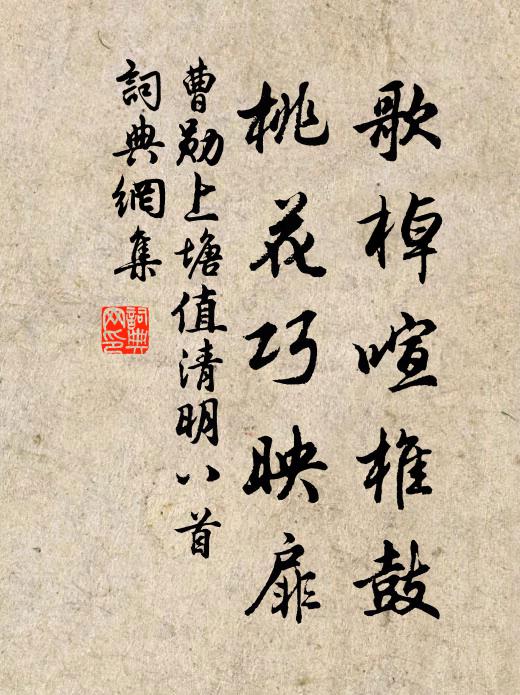 歌棹喧椎鼓
桃花巧映扉
曹勛上塘值清明八首
詞典網集
詞典網印